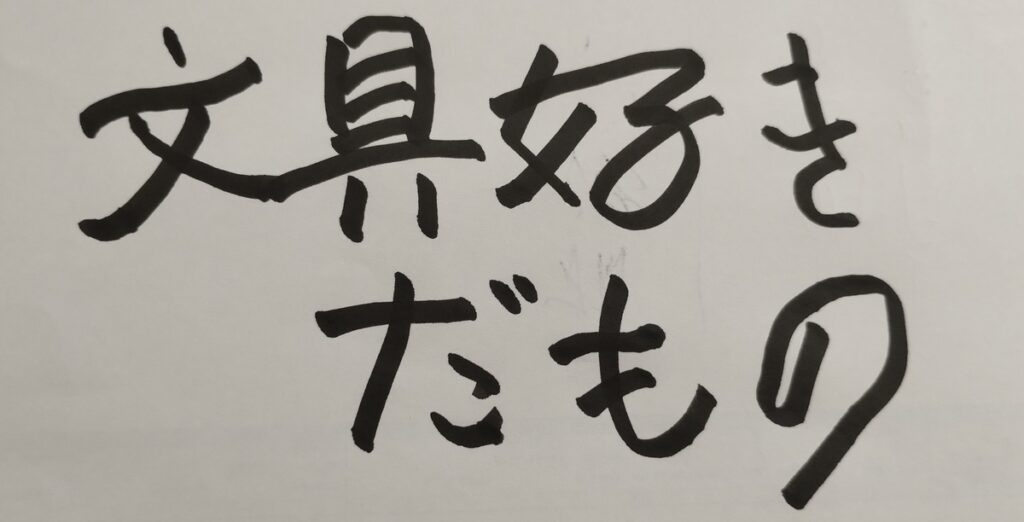 文具好き
だもの